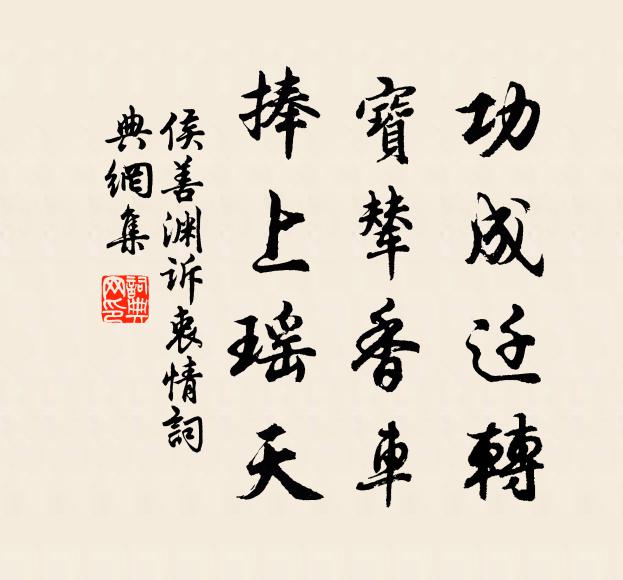 功成迁轉
寶輦香車
捧上瑶天
侯善渊诉衷情詞
典網集
詞典
网印